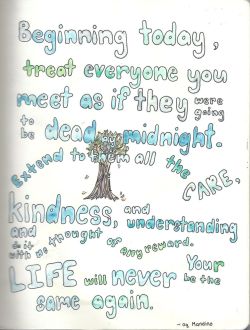 Beginning today,
treat everyone you
meet as if they were
going
to be dead by midnight.
Extend to them all the CARE,
kindness, and understanding
and do it
with no thought of any reward.
LIFE will never Your be the
same again.
- og Mandino